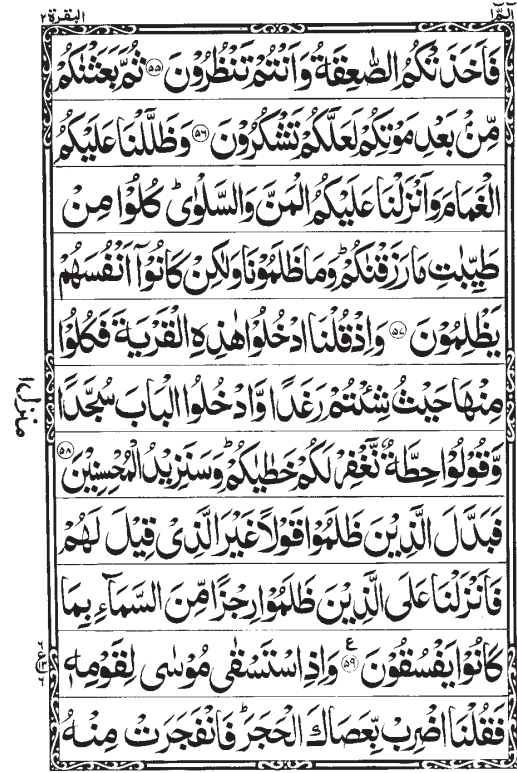 الٓمّٓ١ البقرة٢
فَاَخَذَتْكُمُ الصّٰعِقَةُ وَاَنْتُمْ تَنْظُرُوْنَ ۝۵۵ ثُمَّ بَعَثْنٰكُمْ
مِّنْۢ بَعْدِ مَوْتِكُمْ لَعَلَّكُمْ تَشْكُرُوْنَ ۝۵۶ وَظَلَّلْنَا عَلَيْكُمُ
الْغَمَامَ وَاَنْزَلْنَا عَلَيْكُمُ الْمَنَّ وَالسَّلْوٰىؕ كُلُوْا مِنْ
طَيِّبٰتِ مَا رَزَقْنٰكُمْؕ وَمَا ظَلَمُوْنَا وَلٰكِنْ كَانُوْۤا اَنْفُسَهُمْ
يَظْلِمُوْنَ ۝۵۷ وَاِذْ قُلْنَا ادْخُلُوْا هٰذِهِ الْقَرْيَةَ فَكُلُوْا
مِنْهَا حَيْثُ شِئْتُمْ رَغَدًا وَّادْخُلُوا الْبَابَ سُجَّدًا
وَّقُوْلُوْا حِطَّةٌ نَّغْفِرْ لَكُمْ خَطٰيٰكُمْؕ وَسَنَزِيْدُ الْمُحْسِنِيْنَ ۝۵۸
فَبَدَّلَ الَّذِيْنَ ظَلَمُوْا قَوْلًا غَيْرَ الَّذِىْ قِيْلَ لَهُمْ
فَاَنْزَلْنَا عَلَى الَّذِيْنَ ظَلَمُوْا رِجْزًا مِّنَ السَّمَآءِ بِمَا
كَانُوْا يَفْسُقُوْنَ ۝۵۹ ع وَاِذِ اسْتَسْقٰى مُوْسٰى لِقَوْمِهٖ
فَقُلْنَا اضْرِبْ بِّعَصَاكَ الْحَجَرَؕ فَانْفَجَرَتْ مِنْهُ
منزل١